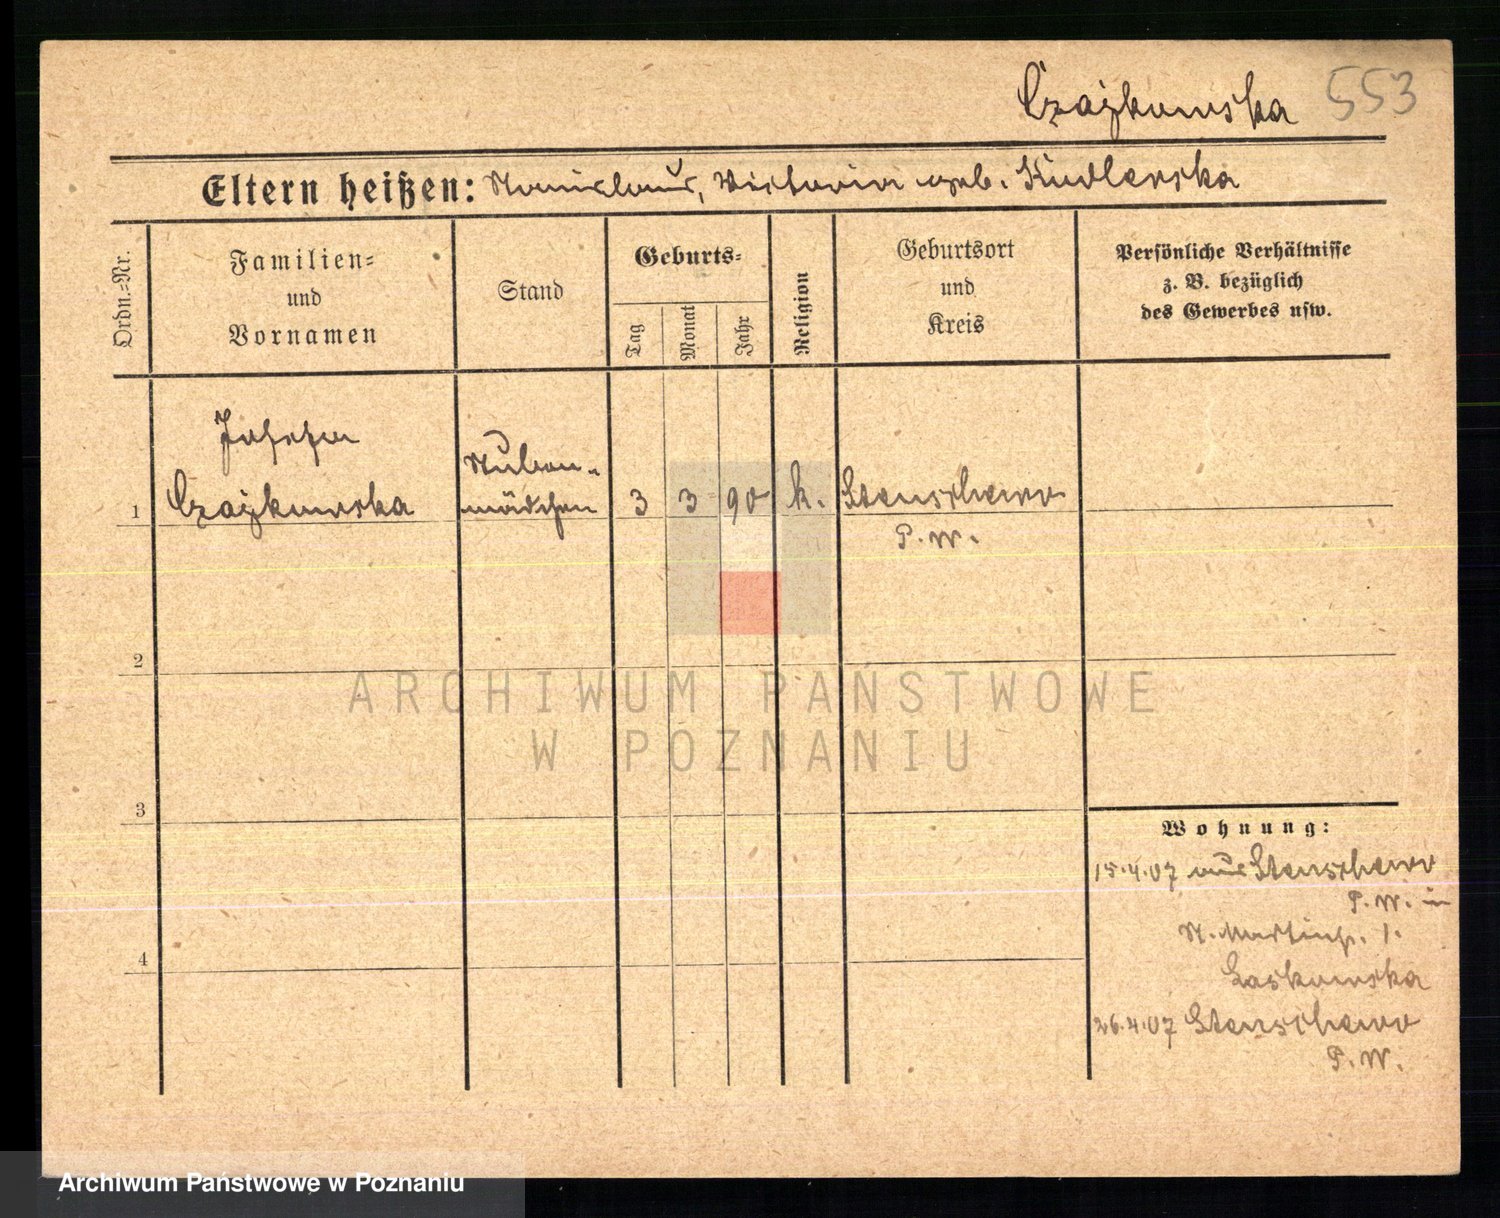 Czajkowska 553
Eltern heißen: Stanislaus, Victoria geb. Kudlerska
Ordn.-Nr.
Familien-
und
Vornamen
Stand
Geburts-
Tag
Monat
Jahr
Religion
Geburtsort
und
Kreis
Persönliche Verhältnisse
z. B. bezüglich
des Gewerbes usw.
Josefa
Stuben-
1 Czajkowska mädchen 3 3 90 k. Stenschewo
P. W.
2
ARCHIWUM PAŃSTWOWE
W POZNANIU
3
Wohnung:
15.4.07 aus Stenschewo
P. W. in
St. Martinstr. 1.
4
Laskowska
26.4.07 Stenschewo
P. W.
Archiwum Państwowe w Poznaniu